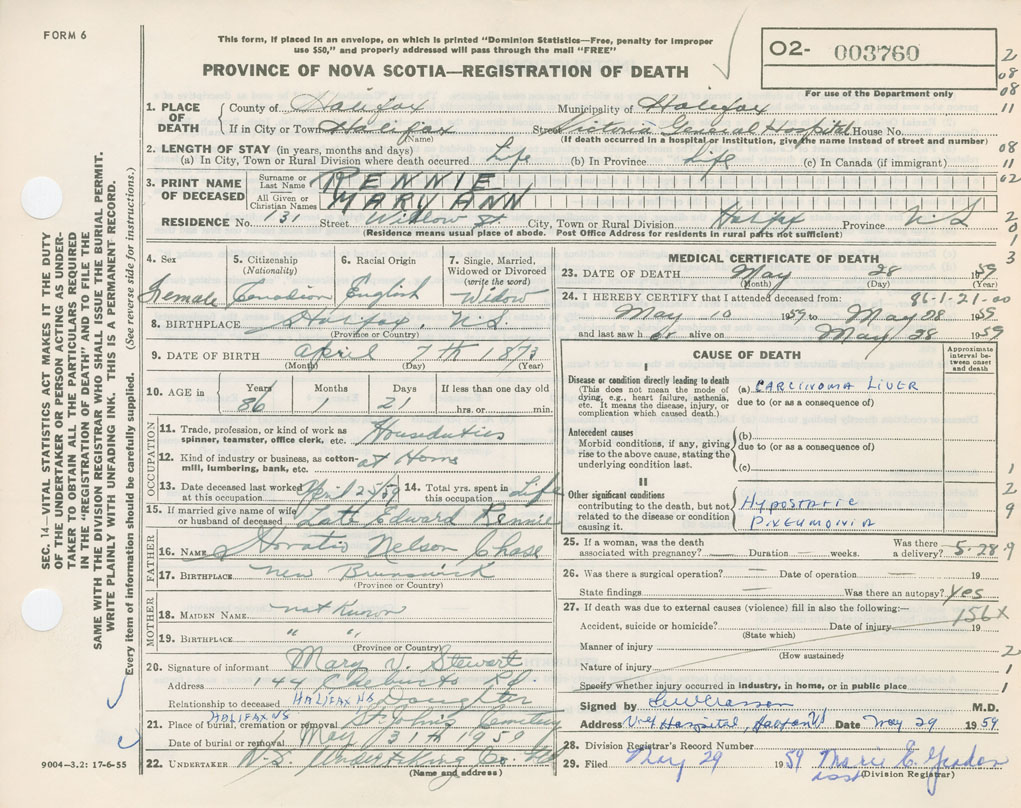 FORM 6
This form, if placed in an envelope, on which is printed "Dominion Statistics—Free, penalty for improper
use $50," and properly addressed will pass through the mail "FREE"
PROVINCE OF NOVA SCOTIA—REGISTRATION OF DEATH
O2- 003760
For use of the Department only
1. PLACE OF DEATH
County of Halifax Municipality of Halifax
If in City or Town Halifax Street Victoria General Hospital House No.
(Name) (If death occurred in a hospital or institution, give the name instead of street and number)
2. LENGTH OF STAY (in years, months and days)
(a) In City, Town or Rural Division where death occurred Life (b) In Province Life (c) In Canada (if immigrant)
3. PRINT NAME OF DECEASED
Surname or Last Name RENNIE
All Given or Christian Names MARY ANN
RESIDENCE No. 131 Street Willow St. City, Town or Rural Division Halifax Province N.S
(Residence means usual place of abode. Post Office Address for residents in rural parts not sufficient)
4. Sex Female
5. Citizenship (Nationality) Canadian
6. Racial Origin English
7. Single, Married, Widowed or Divorced (write the word) Widow
8. BIRTHPLACE Halifax, N.S.
(Province or Country)
9. DATE OF BIRTH April 7th 1873
(Month) (Day) (Year)
10. AGE in Years 86 Months 1 Days 21 If less than one day old hrs. or min.
OCCUPATION
11. Trade, profession, or kind of work as spinner, teamster, office clerk, etc. Houseduties
12. Kind of industry or business, as cotton-mill, lumbering, bank, etc. at Home
13. Date deceased last worked at this occupation April 25/59 14. Total yrs. spent in this occupation Life
15. If married give name of wife or husband of deceased Late Edward Rennie
FATHER
16. NAME Horatio Nelson Chase
17. BIRTHPLACE New Brunswick
(Province or Country)
MOTHER
18. MAIDEN NAME not Known
19. BIRTHPLACE " "
(Province or Country)
20. Signature of informant Mary V. Stewart
Address 144 Chebucto Rd.
HALIFAX NS
Relationship to deceased Daughter
HALIFAX NS
21. Place of burial, cremation or removal St. John's Cemetery
Date of burial or removal May 31th 1959
22. UNDERTAKER N.S. Undertaking Co. Ltd
(Name and address)
9004—3.2: 17-6-55
SEC. 14—VITAL STATISTICS ACT MAKES IT THE DUTY
OF THE UNDERTAKER OR PERSON ACTING AS UNDER-
TAKER TO OBTAIN ALL THE PARTICULARS REQUIRED
IN THE "REGISTRATION OF DEATH" AND TO FILE THE
SAME WITH THE DIVISION REGISTRAR WHO SHALL ISSUE THE BURIAL PERMIT.
WRITE PLAINLY WITH UNFADING INK. THIS IS A PERMANENT RECORD.
Every item of information should be carefully supplied. (See reverse side for instructions.)
MEDICAL CERTIFICATE OF DEATH
23. DATE OF DEATH May 28 1959
(Month) (Day) (Year)
24. I HEREBY CERTIFY that I attended deceased from: 86-1-21-00
May 10 1959 to May 28 1959
and last saw her alive on May 28 1959
CAUSE OF DEATH
Approximate interval between onset and death
I
Disease or condition directly leading to death
(This does not mean the mode of dying, e.g., heart failure, asthenia, etc. It means the disease, injury, or complication which caused death.)
(a) CARCINOMA LIVER
due to (or as a consequence of)
Antecedent causes
Morbid conditions, if any, giving rise to the above cause, stating the underlying condition last.
(b)
due to (or as a consequence of)
(c)
II
Other significant conditions contributing to the death, but not related to the disease or condition causing it.
HYPOSTATIC
PNEUMONIA
25. If a woman, was the death associated with pregnancy? — Duration weeks. Was there a delivery? 5-28-9
26. Was there a surgical operation? — Date of operation — 19
State findings — Was there an autopsy? Yes
27. If death was due to external causes (violence) fill in also the following:— 156X
Accident, suicide or homicide? Date of injury 19
(State which)
Manner of injury
(How sustained)
Nature of injury
Specify whether injury occurred in industry, in home, or in public place
Signed by M.D.
Address V.G. Hospital, Halifax NS Date May 29 1959
28. Division Registrar's Record Number
29. Filed May 29 1959 Marie E.
asst (Division Registrar)
2
08
08
11
08
11
02
2
0
1
3
1
2
9
2
1
1